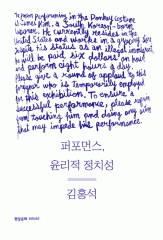 The person performing in the Donkey costume
is James Kim, a South Korean-born
laborer. He currently resides in the
United States and works in a grocery store
despite his status as an illegal immigrant.
He will be paid six dollars an hour
and perform eight hours a day.
Please give a round of applause to this
performer who is temporarily employed
for this exhibition. To ensure a
successful performance, please refrain
from touching him and doing any acts
that may impede his performance.
퍼포먼스,
윤리적 정치성
김홍석
현실문화